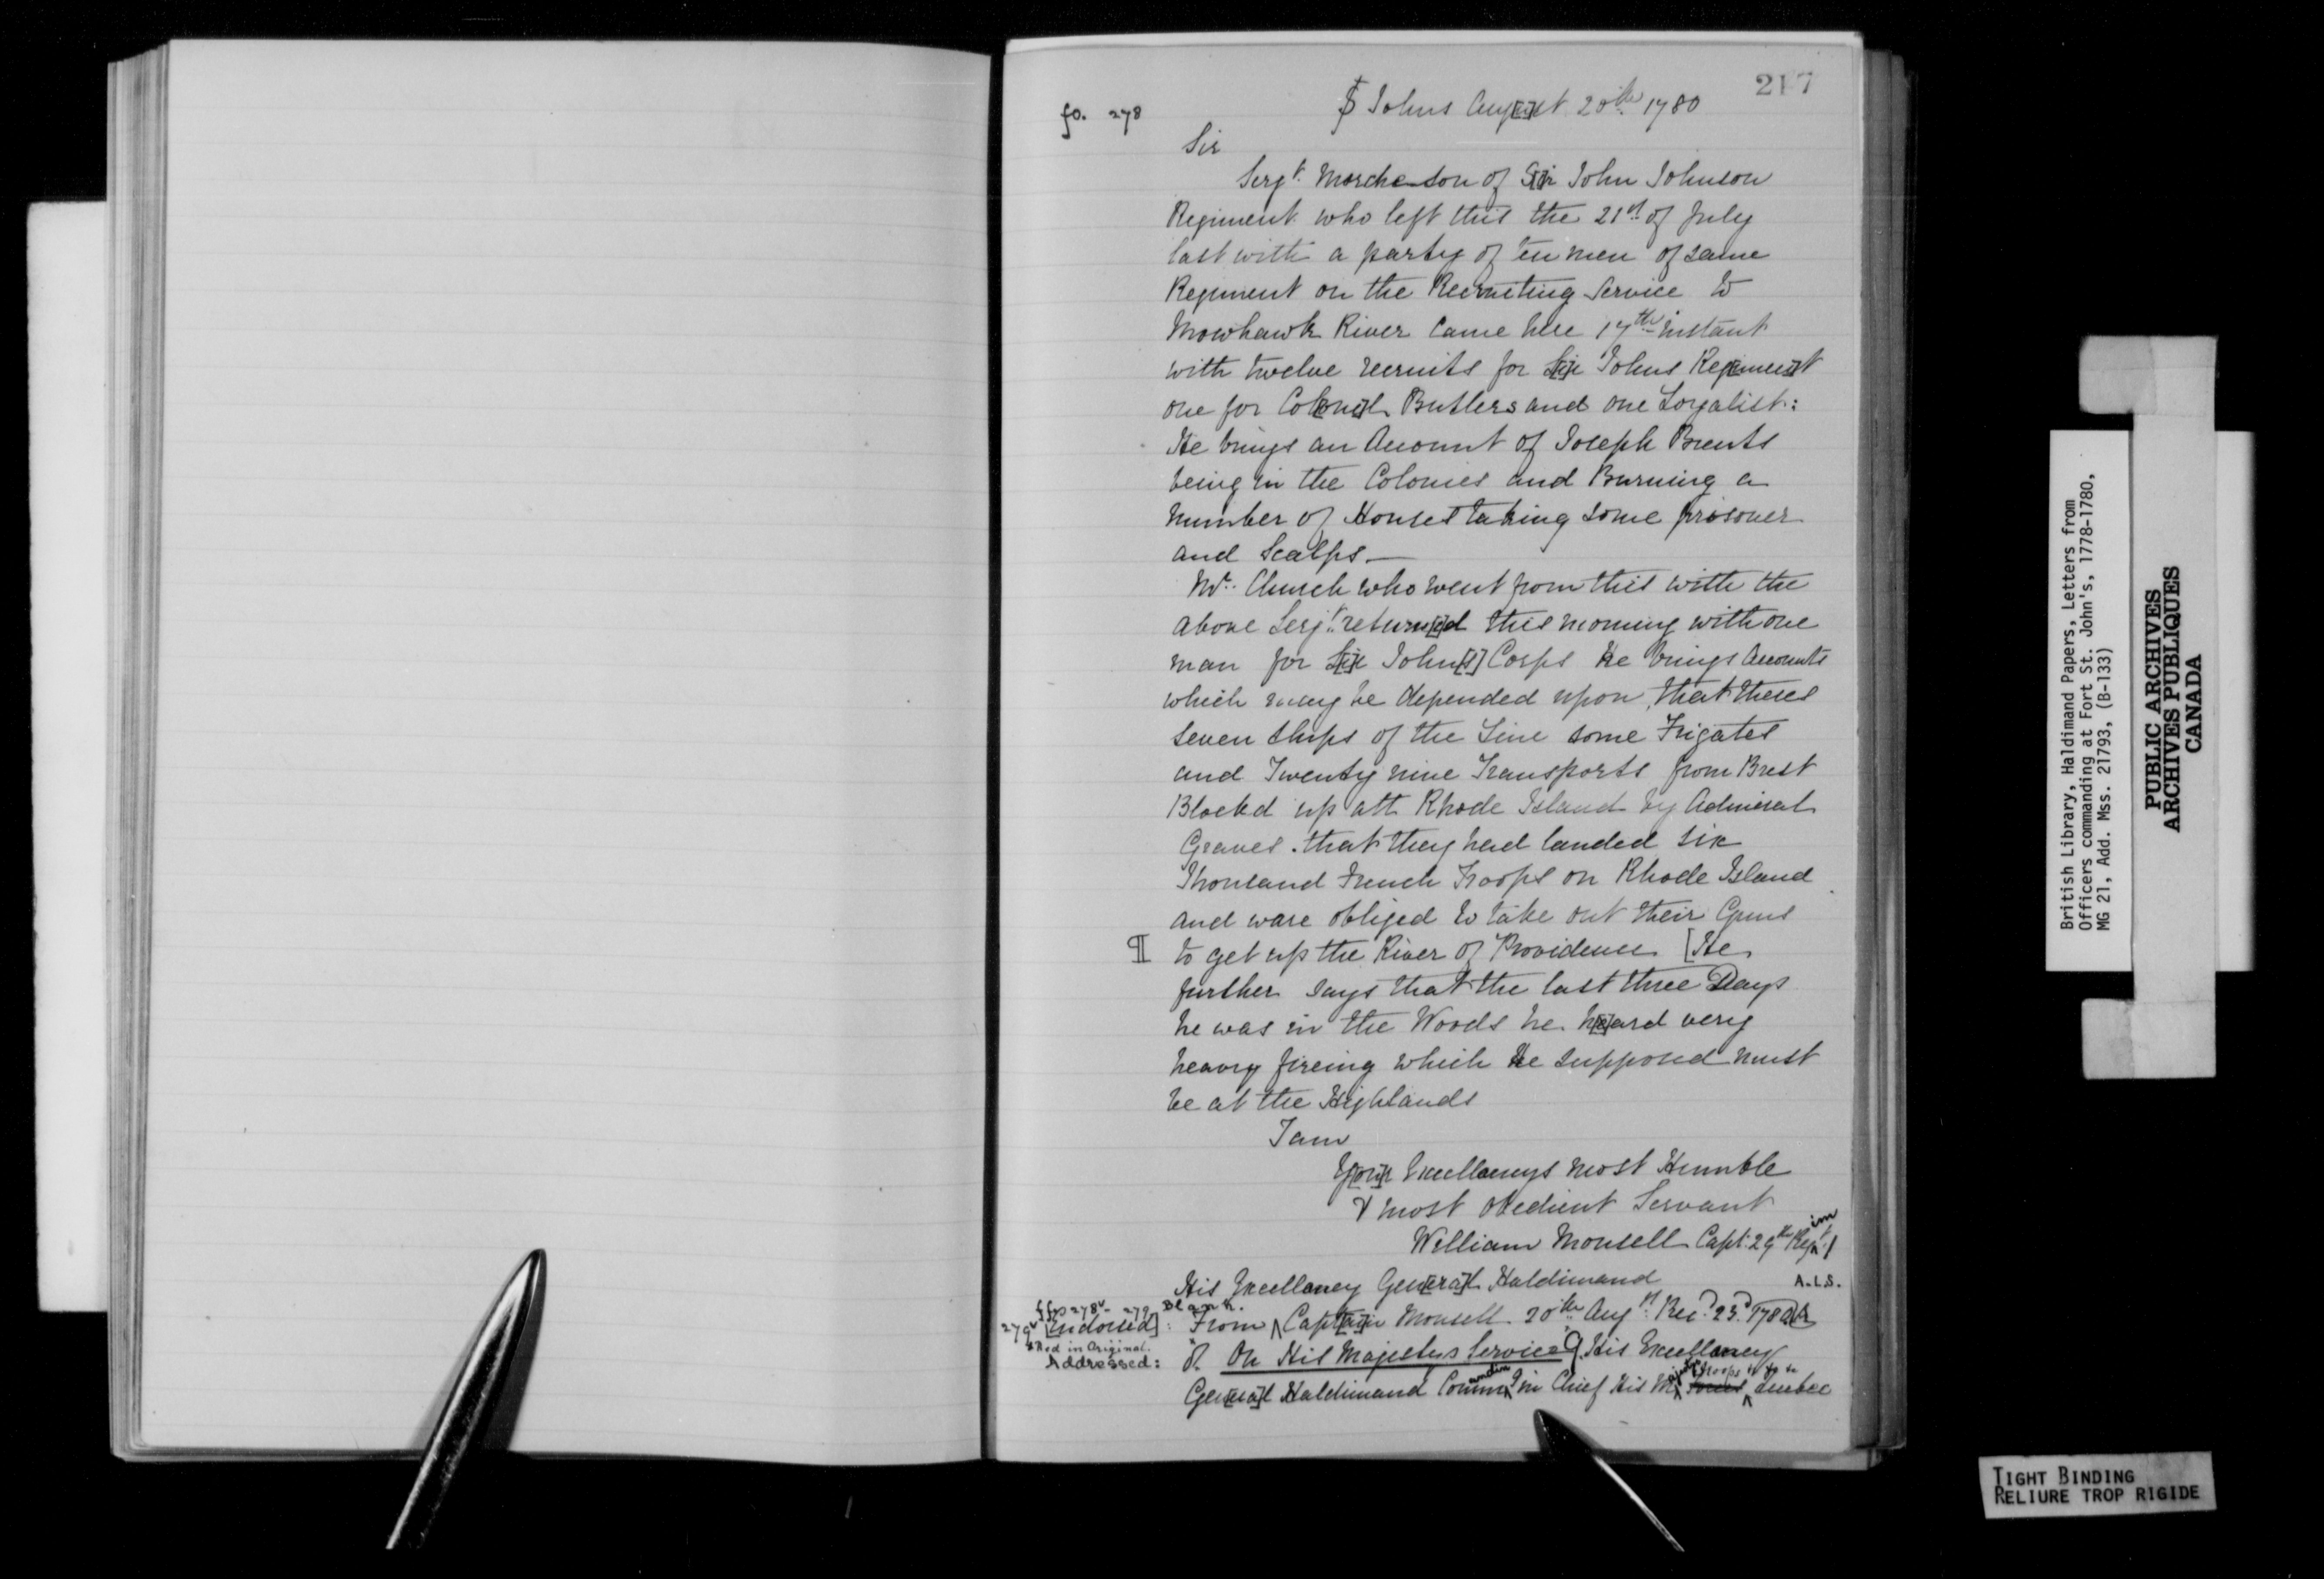 217
fo. 278
St Johns Aug[u]st 20th 1780
Sir
Sergt. Morcheson of S[i]r John Johnson
Regiment who left this the 21st of July
last with a party of ten men of same
Regiment on the Recruiting Service to
Mowhawk River Came here 17th Instant
with twelve recruits for S[i]r Johns Reg[imen]t
one for Col[one]l Butlers and one Loyalist:
He brings an Account of Joseph Brents
being in the Colonies and Burning a
number of Houses taking some prisoner
and Scalps—
Mr. Church who went from this with the
above Serjt. return[e]d this morning with one
man for S[i]r John[s] Corps He brings Accounts
which may be depended upon, that theres
seven Ships of the Line some Frigates
and Twenty nine Transports from Brest
Blocked up att Rhode Island by Admiral
Graves. that they had landed six
Thousand French Troops on Rhode Island
and ware obliged to take out their Guns
¶ to get up the River of Providence [He
further says that the last three Days
he was in the Woods he h[e]ard very
heavy fireing which he supposed must
be at the Highlands
I am
Y[ou]r Excellancys most Humble
& most obedient Servant
William Monsell Capt. 29th Regimt.
His Excellancy Gen[era]l Haldimand
A.L.S.
ffos 278v - 279 Blank.
279v [Endorsed]: From Capt[ai]n Monsell 20th Augst. Recd. 23d 1780
*Red in Original.
Addressed: On His Majestys Service His Excellancy
Gen[era]l Haldimand Commandr in Chief His Majestys Forces troops &c &c &c Quebec
British Library, Haldimand Papers, Letters from
Officers commanding at Fort St. John's, 1778-1780,
MG 21, Add. Mss. 21793, (B-133)
PUBLIC ARCHIVES
ARCHIVES PUBLIQUES
CANADA
TIGHT BINDING
RELIURE TROP RIGIDE